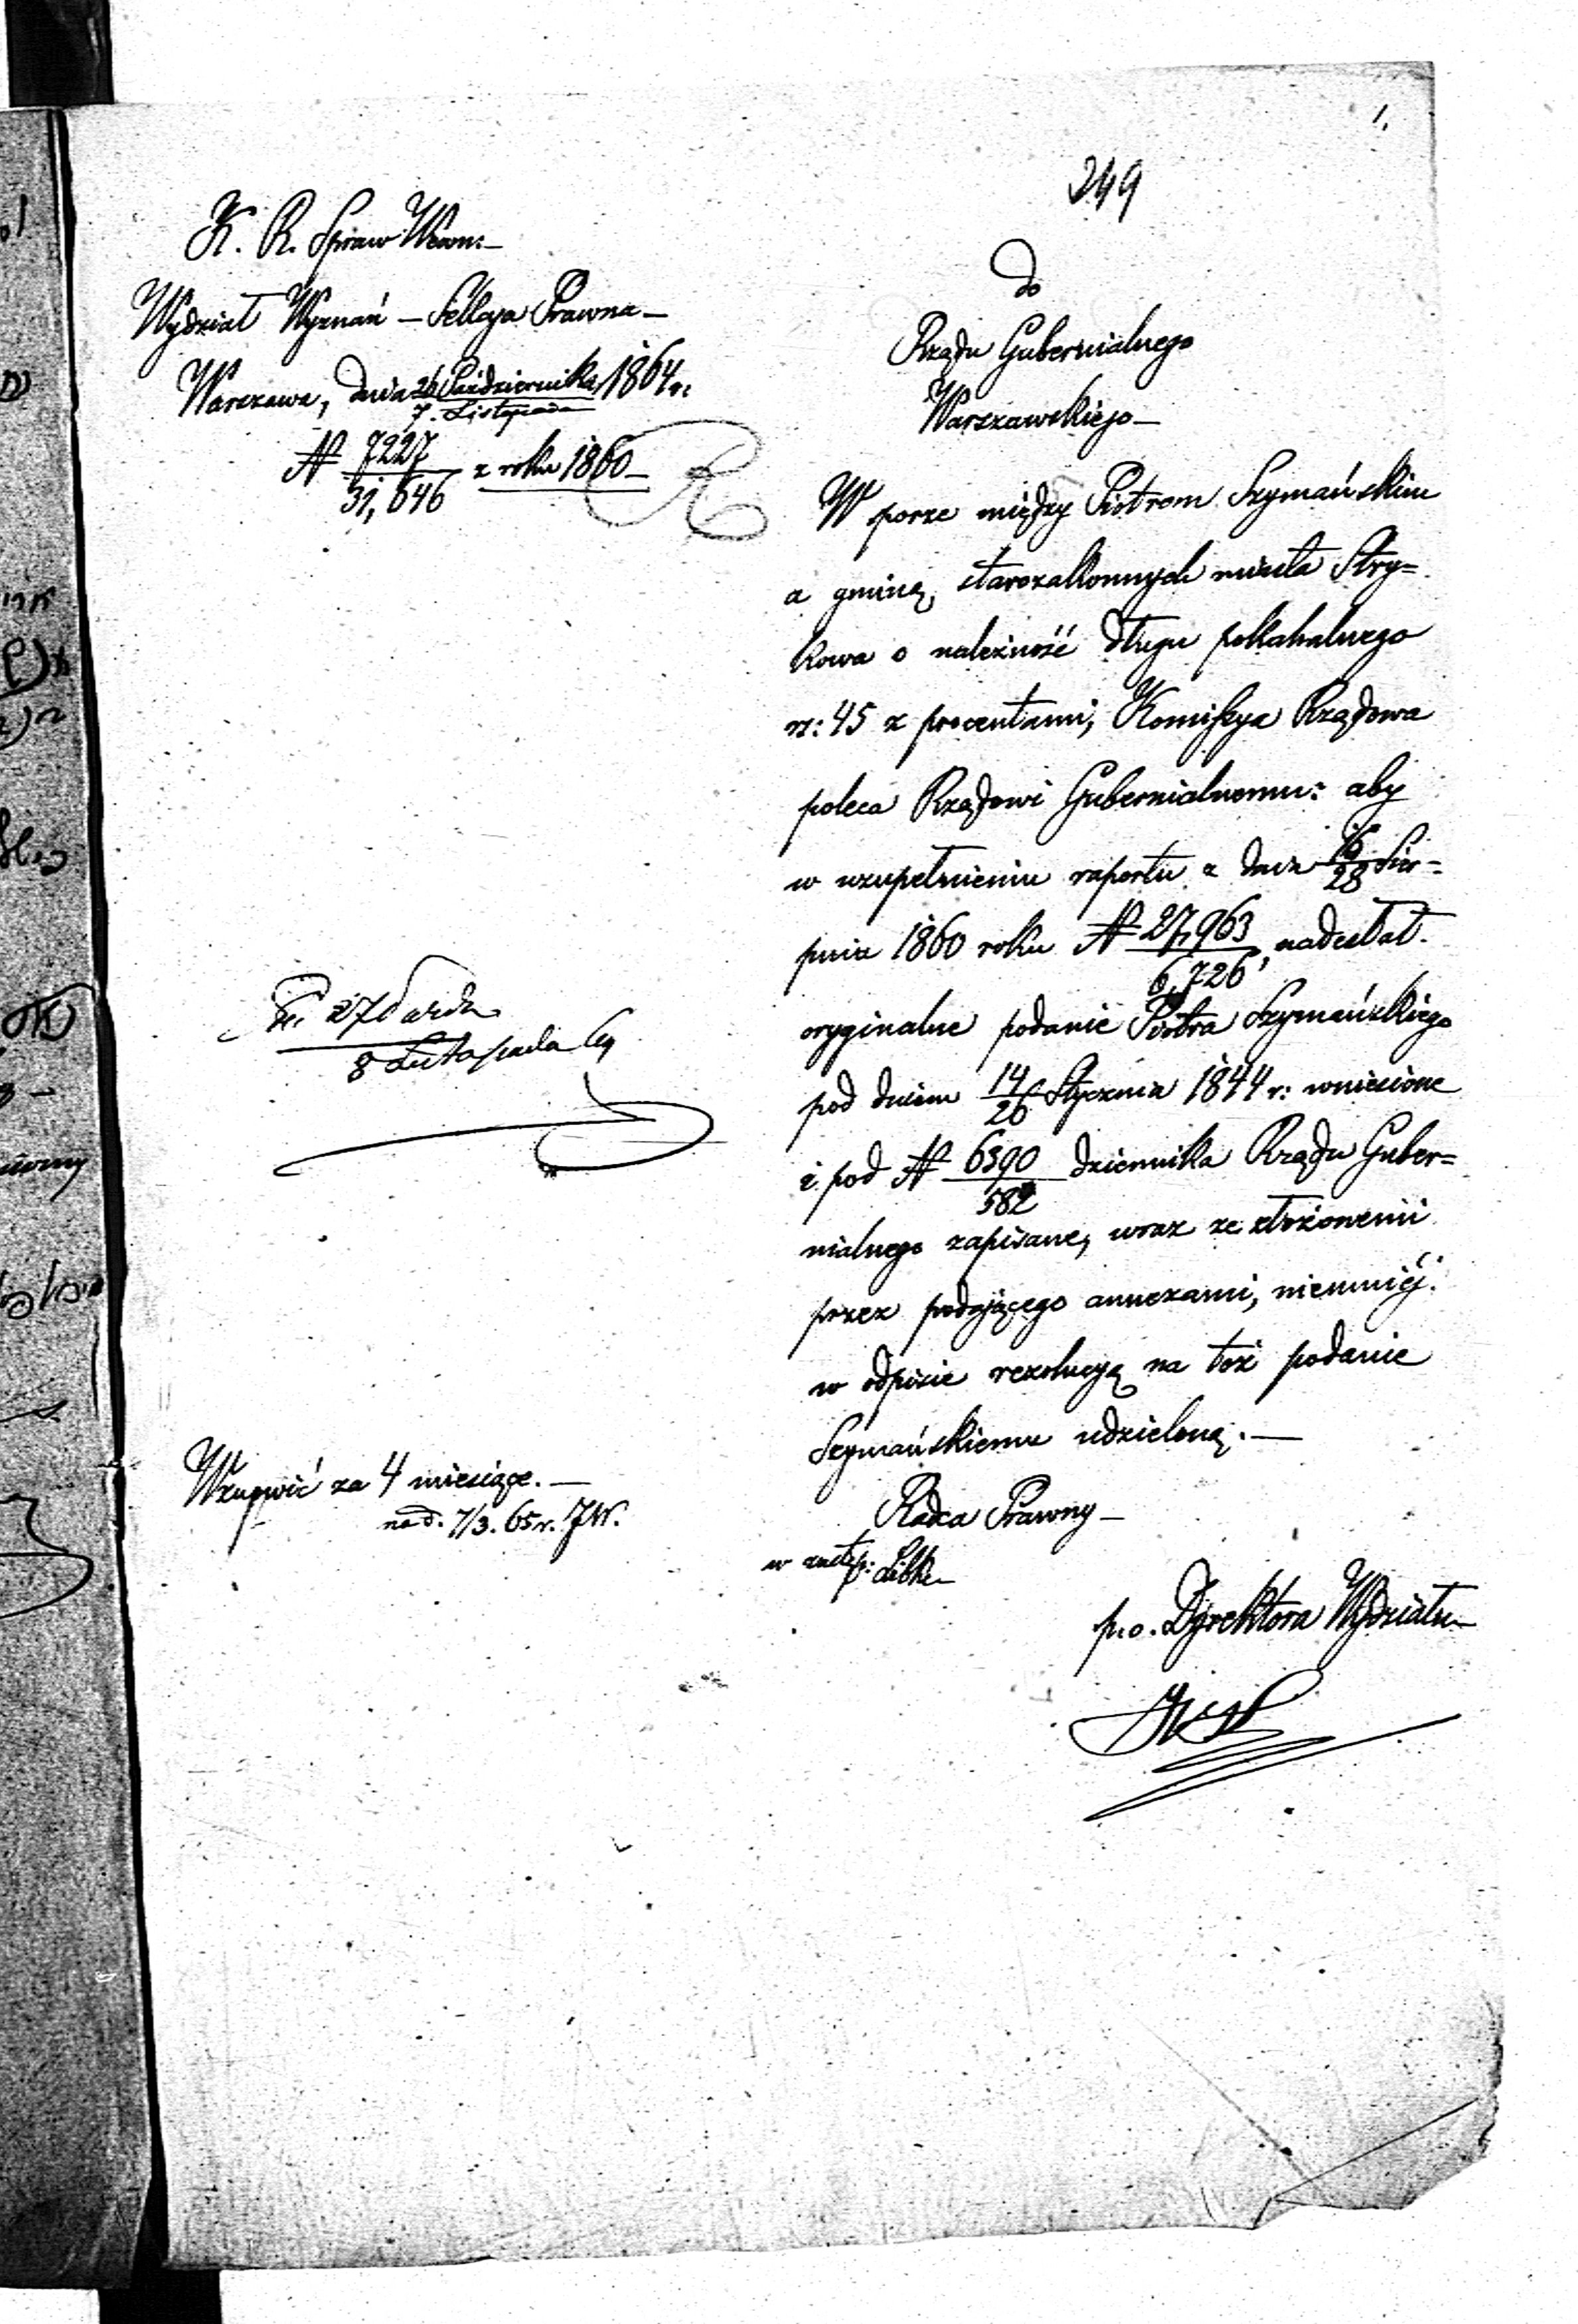 1.
249
K. R. Spraw Wewn:—
Wydział Wyznań — Sekcya Prawna —
Warszawa, dnia 26 Października / 7. Listopada 1864 r:
№ 7227 / 31,646 z roku 1860 —
do
Rządu Gubernialnego
Warszawskiego —
W sporze między Piotrem Szymańskim
a gminą starozakonnych miasta Stry=
kowa o należność długu pokahalnego
rs: 45 z procentami, Komissya Rządowa
poleca Rządowi Gubernialnemu: aby
w uzupełnieniu raportu z dnia 16/28 Sier=
pnia 1860 roku № 27,963 / 6,726, nadesłał
oryginalne podanie Piotra Szymańskiego
pod dniem 14/26 Stycznia 1844 r: wniesione
i pod № 6390 / 582 dziennika Rządu Guber=
nialnego zapisane, wraz ze złożonemi
przez podającego annexami, niemniéj
w odpisie rezolucyą na też podanie
Szymańskiemu udzieloną. —
27 Paźdz
8 Listopada 64
Wznowić za 4 miesiące. —
na d. 7/3. 65 r. JW.
Radca Prawny —
w zastęp:
p. o. Dyrektora Wydziału —